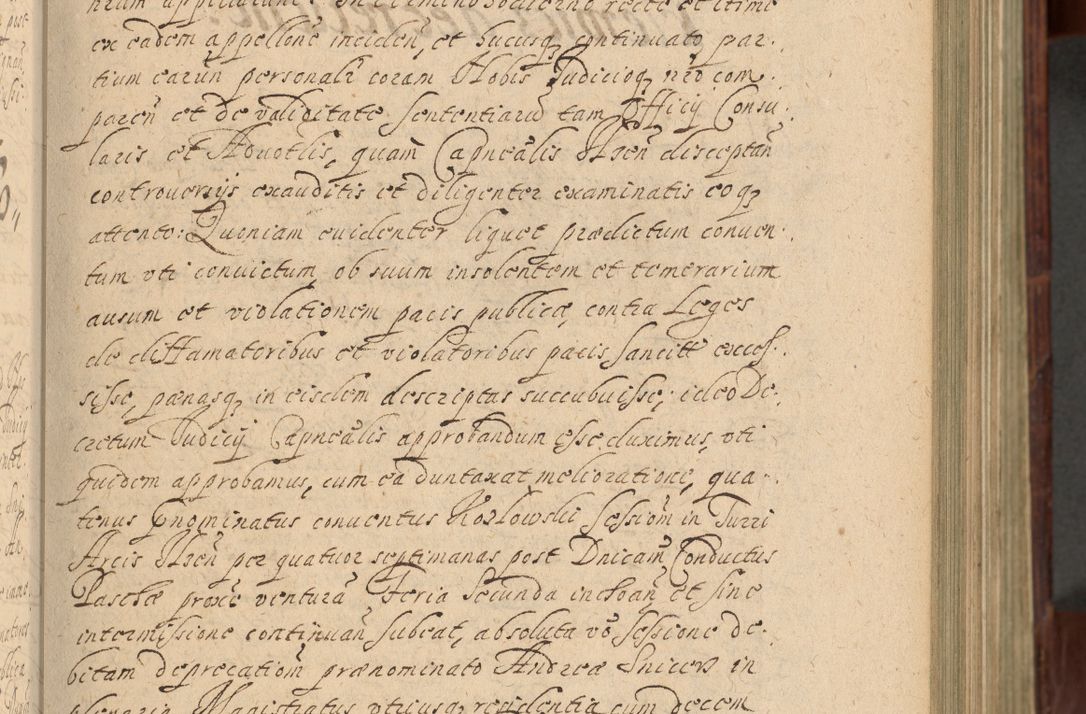 ex eadem appellone inciden, et hucusq continuato par.
tium earun personali coram Nobis Judicioq nro com.
paren et de validitate Sententiaru tam Officij Consu.
laris et Advotlis, quam Capnealis Nren disceptan
controversijs exauditis et diligenter examinatis eoq
attento: Quoniam evidenter liquet prædictum conven.
tum uti convictum ob suum insolentem et temerarium
ausum et violationem pacis publicæ, contra Leges
de diffamatoribus et violatoribus pacis Sancitt exces.
sisse, pænasq in eisdem descriptas succubuisse; ideo De.
cretum Judicij Capnealis approbandum esse duximus, uti
quidem approbamus, cum ea duntaxat melioratione, qua.
tenus pnominatus conventus Kozlowski Sessiom in Turri
Arcis Nren per quatuor septimanas post Dnicam Conductus
Paschæ proxe ventura Feria Secunda inchoan et sine
intermissione continuan subeat, absoluta vo Sessione de.
bitam deprecatiom prænominato Andreæ Snicers in
plenaria Magistratus utriusq residentia cum decem